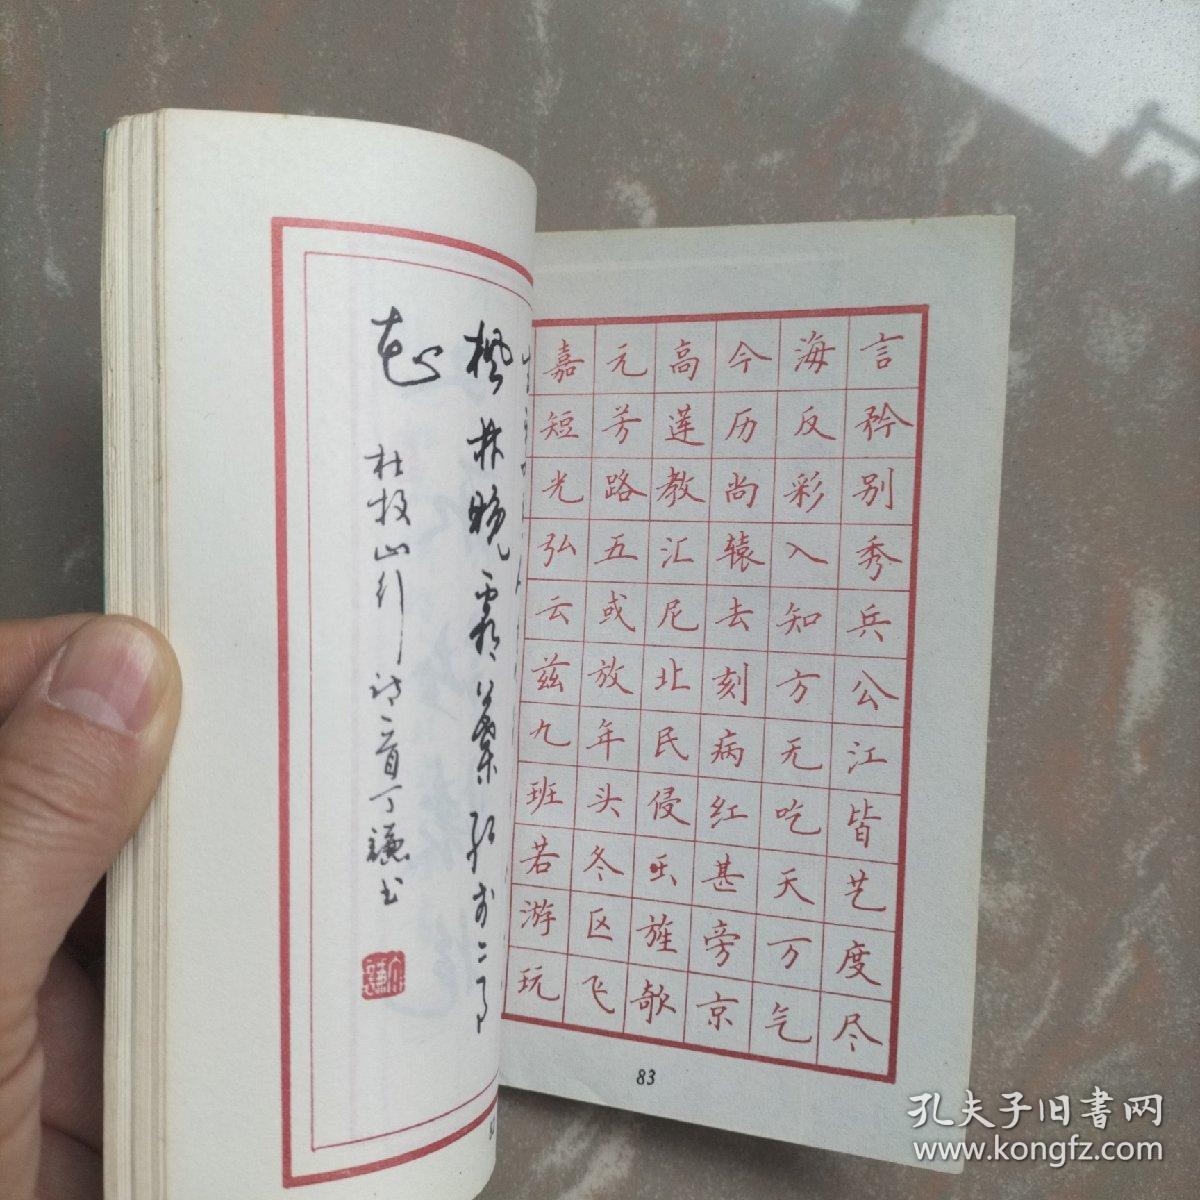 枫林晚霜葉红于二月
花
杜牧山行诗一首丁谦书
言矜别秀兵公江皆艺度尽
海反彩入知方无吃天万气
今历尚辕去刻病红甚旁京
高莲教汇尼北民侵旌欹
元芳路五或放年头冬区飞
嘉短光弘云兹九班若游玩
83
孔夫子旧書网
www.kongfz.com